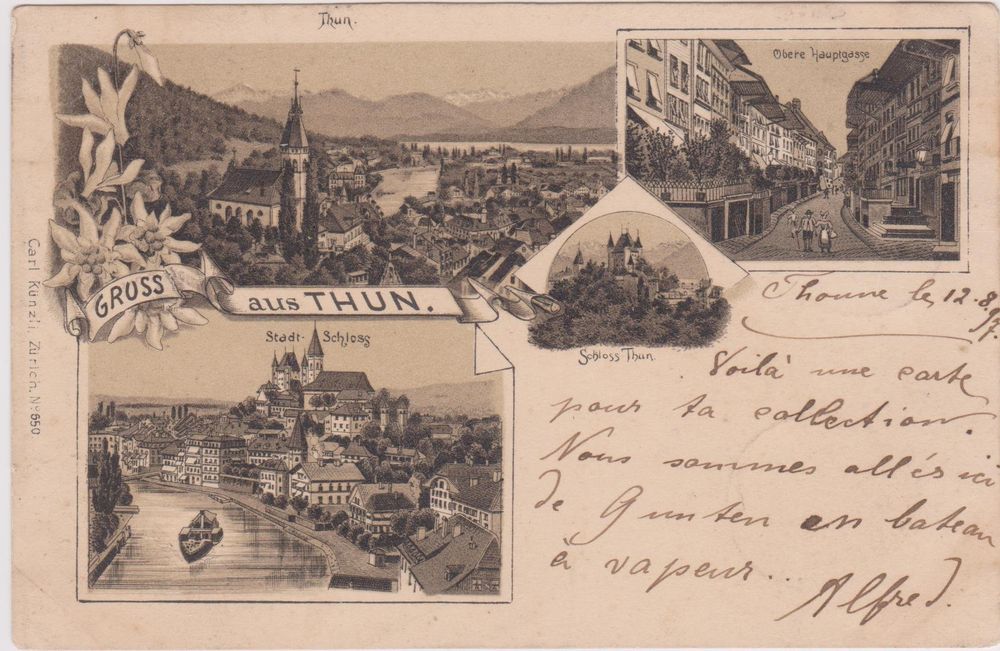 Thun.
Obere Hauptgasse
GRUSS
aus THUN.
Schloss Thun.
Stadt- Schloss
Carl Künzli, Zürich. No 650
Thoune le 12.8.97.
Voilà une carte
pour ta collection.
Nous sommes allés ici
de Gunten en bateau
à vapeur...
Alfred.